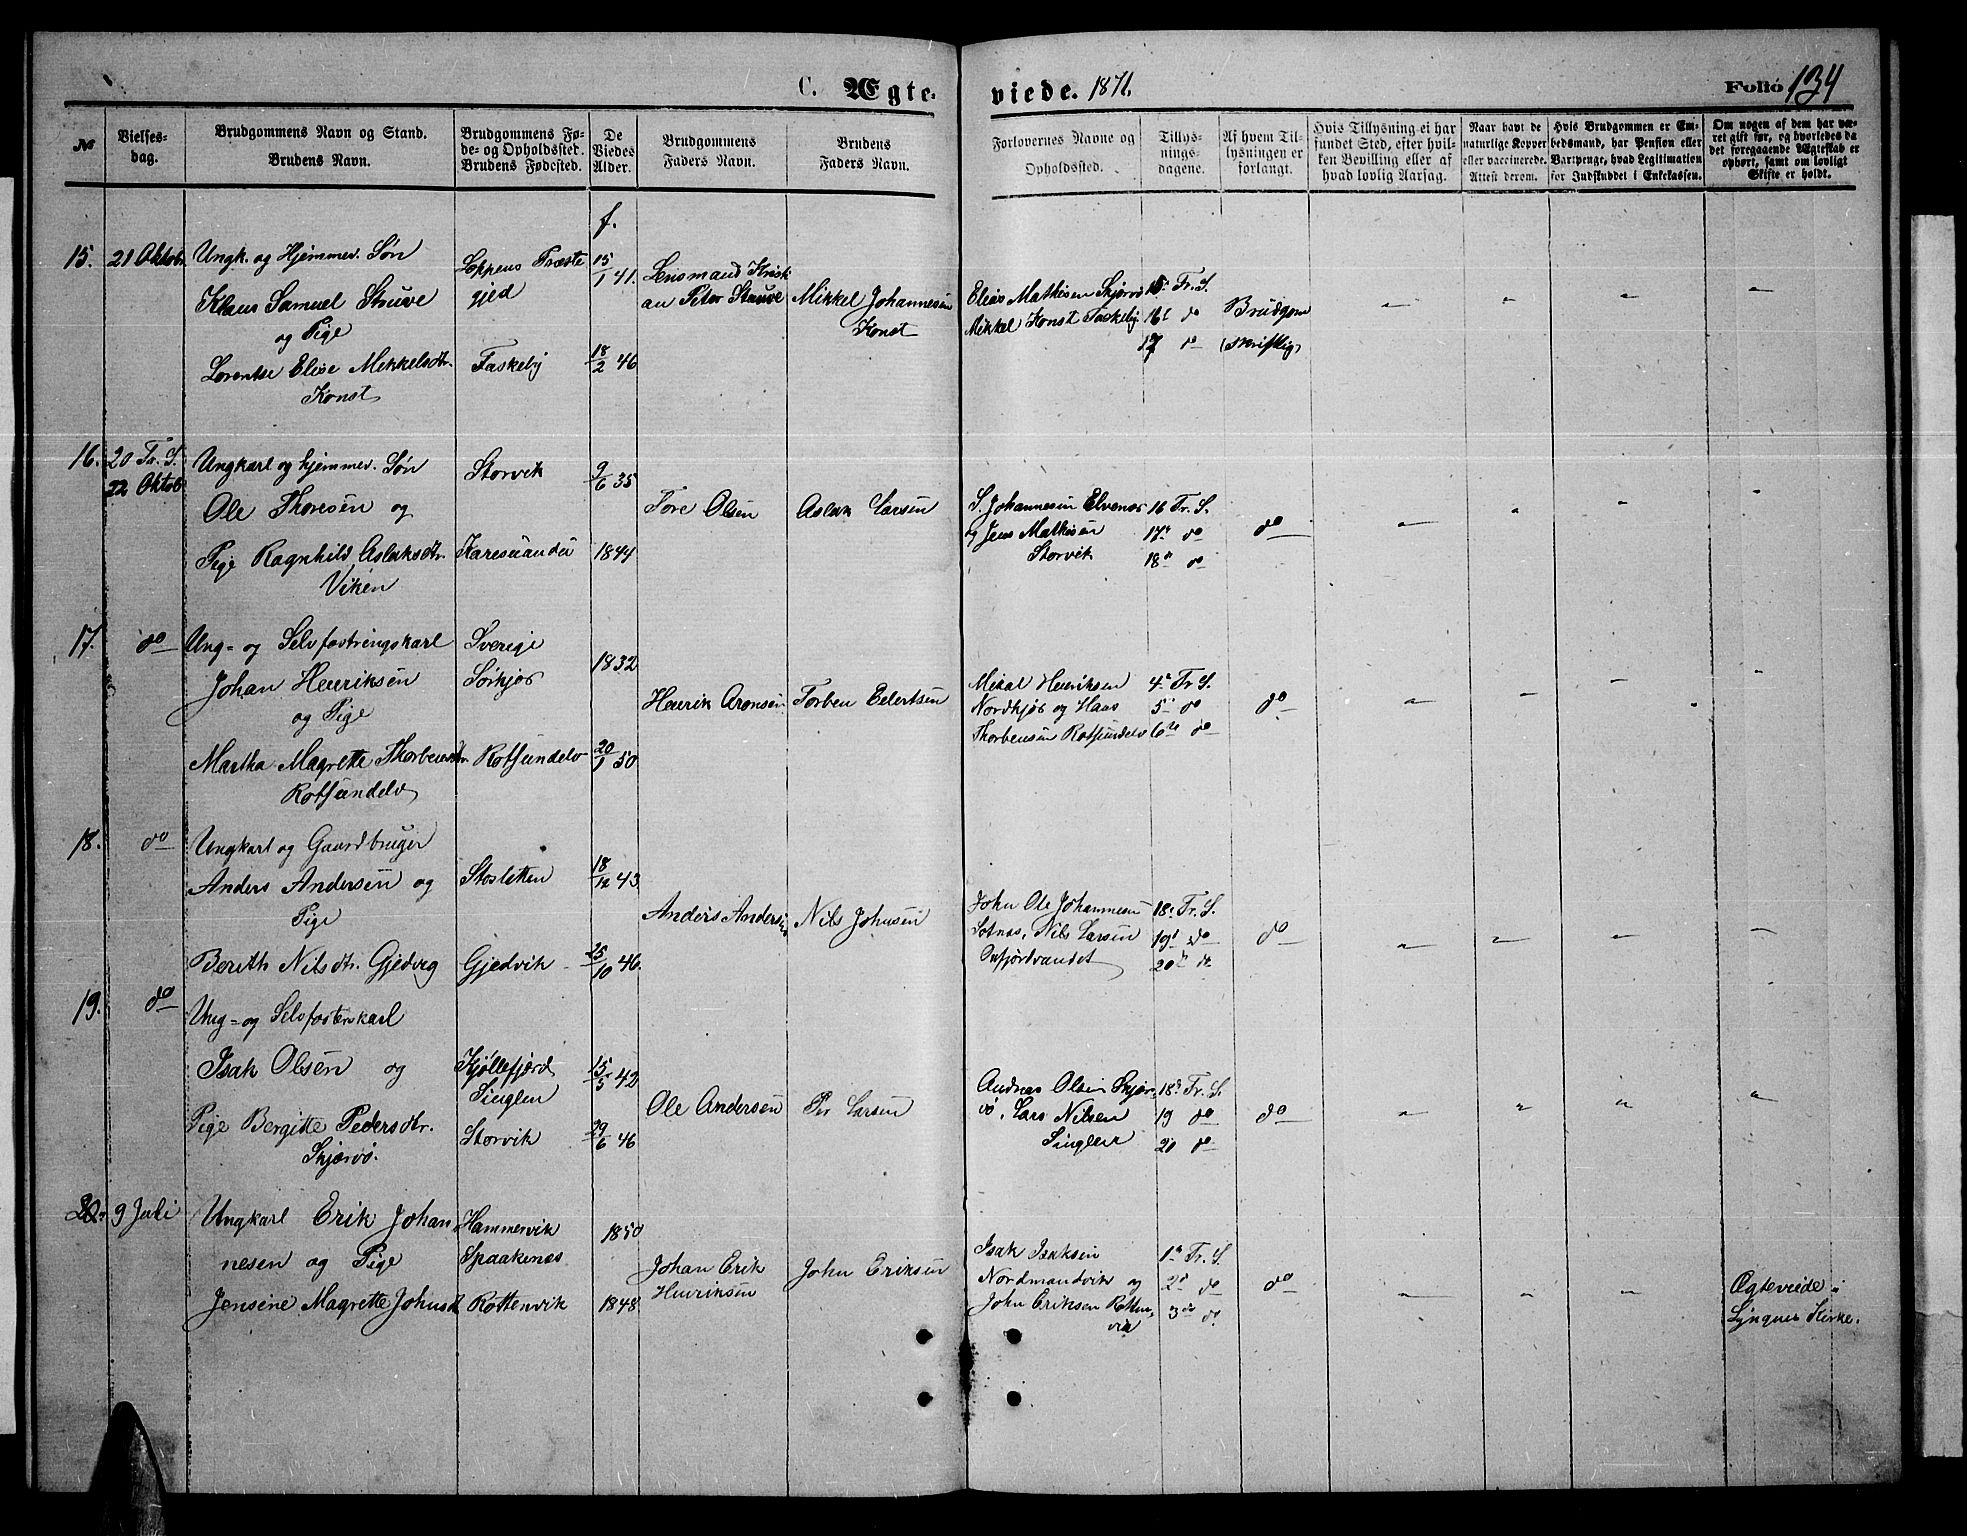 C. Ægte- viede. 1871. Folio 134
№
Vielses-
dag.
Brudgommens Navn og Stand.
Brudens Navn.
Brudgommens Fø-
de- og Opholdssted.
Brudens Fødested.
De
Viedes
Alder.
Brudgommens
Faders Navn.
Brudens
Faders Navn.
Forlovernes Navne og
Opholdssted.
Tillys-
nings-
dagene.
Af hvem Til-
lysningen er
forlangt.
Hvis Tillysning ei har
fundet Sted, efter hvil-
ken Bevilling eller af
hvad lovlig Aarsag.
Naar havt de
naturlige Kopper
eller vaccinerede.
Attest derom.
Hvis Brudgommen er Em-
bedsmand, har Pension eller
Vartpenge, hvad Legitimation
for Indskuddet i Enkekassen.
Om nogen af dem har væ-
ret gift før, og hvorledes da
det foregaaende Ægteskab er
ophørt, samt om lovligt
Skifte er holdt.
f.
15. 21 Oktob.
Ungk. og Hjemmev. Søn
Klaus Samuel Struve
og Pige
Lorentse Elise Mikkelsdtr.
Konst
Loppens Præste
gjed
Taskeby
15/1 41.
18/2 46
Lensmand Krist
an Peter Stauve
Mikkel Johannesen
Konst
Elias Mathisen Skjervø
Mikkel Konst Taskeby
15 Fr. S.
16 do
17 do
Brudgom
(skriftlig)
16. 20 Tr. S.
22 Oktob
Ungkarl og hjemmev. Søn
Ole Thoresen og
Pige Ragnhild Aslaksdtr.
Viken
Storvik
Karesuando
9/6 35
1844
Tore Olsen
Aslak Larsen
S. Johannesen Elvenes
og Jens Mathisen
Storvik
16 Tr. S.
17 do
18 do
do
17. do
Ung- og Selvfostringskarl
Johan Henriksen
og Pige
Martha Magrette Thorbensdtr.
Rotsundelv
Sverige
Sørkjos
Rotsundelv
1832
20/1 50
Henrik Aronsen
Torben Eilertsen
Mikal Henriksen
Nordkjos og Hans
Thorbensen Rotsundelv
4 Tr. S.
5 do
6te do
do
18. do
Ungkarl og Gaardbruger
Anders Andersen og
Pige
Berith Nilsdtr. Gjedvig
Storsletten
Gjedvik
18/12 43
25/10 46.
Anders Andersen
Nils Johnsen
John Ole Johannesen
Sotnes, Nils Larsen
Oxfjordvandet
18 Tr. S.
19 do
20 do
do
19. do
Ung- og Selvfosterskarl
Isak Olsen og
Pige Bergitte Pedersdtr.
Skjervø.
Kjøllefjord
Singlen
Storvik
15/5 42
29/6 46
Ole Andersen
Per Larsen
Andreas Olsen Skjer-
vø, Lars Nilsen
Singlen
18 Tr. S.
19 do
20 do
do
20. 9 Juli
Ungkarl Erik Johan
nesen og Pige
Jensine Magrette Johnsdt
Hammervik
Spaakenes
Rottenvik
1850
1848
Johan Erik
Henriksen
John Eriksen
Isak Isaksen
Nordmandvik og
John Eriksen Rotten
vik
1 Tr. S.
2 do
3 do
do
Ægteviede i
Lyngens Kirke.